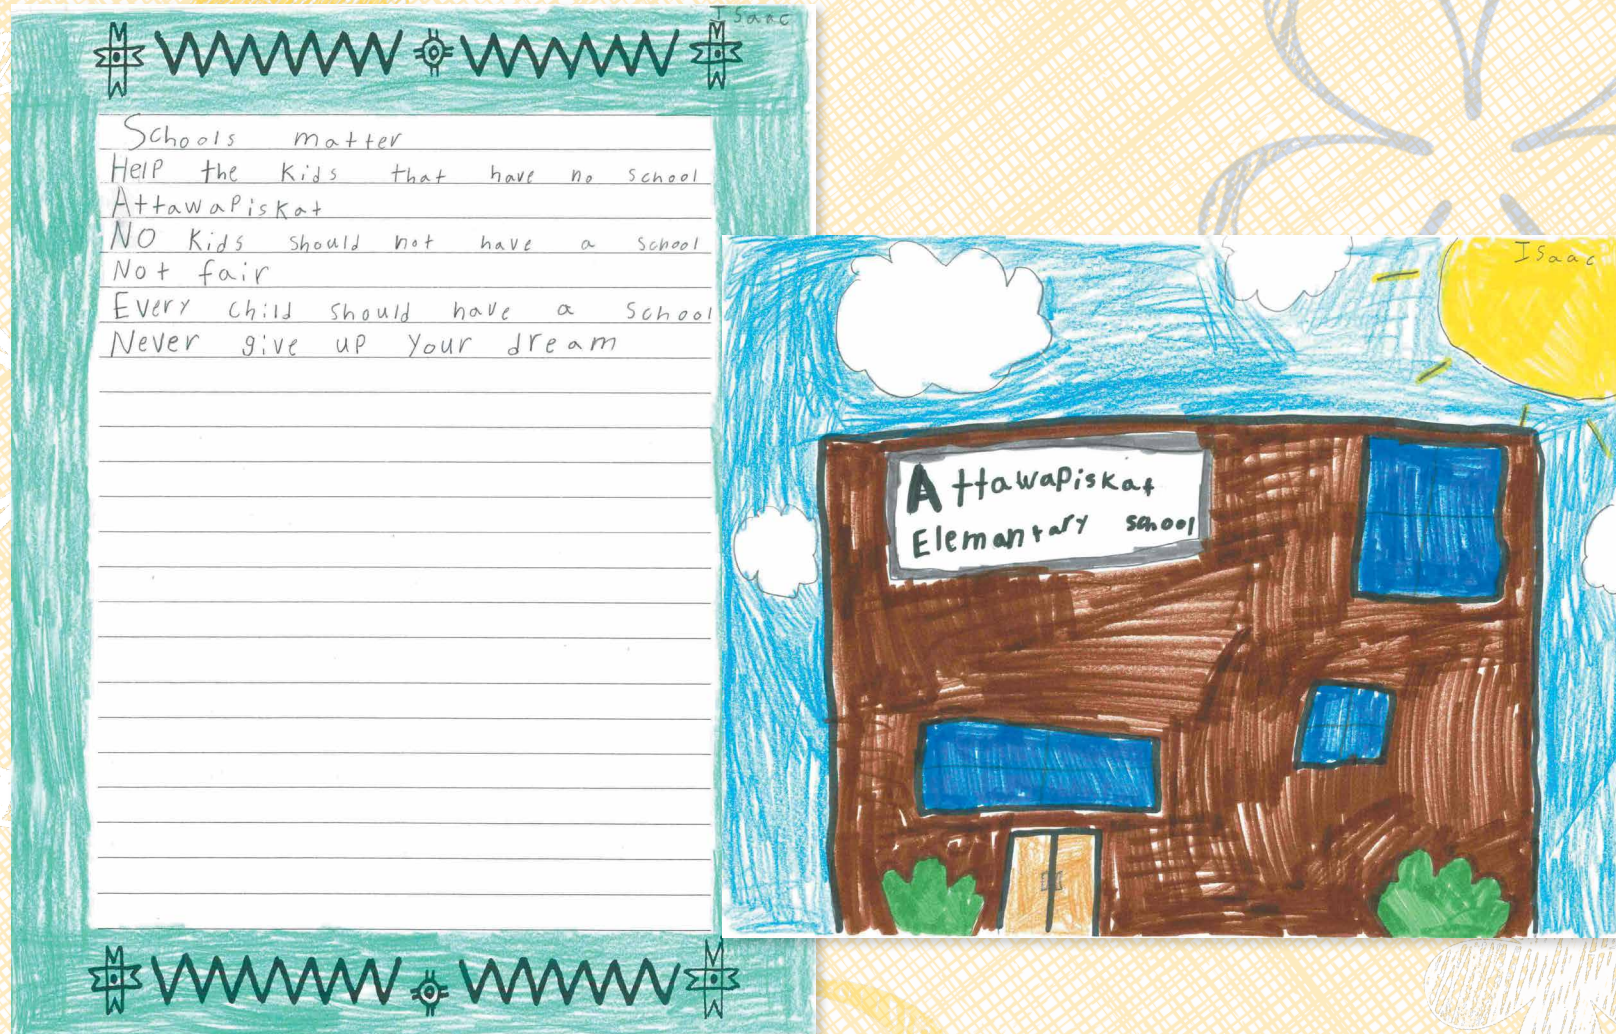 Isaac
Schools matter
Help the Kids that have no school
Attawapiskat
NO Kids should not have a school
Not fair
Every child should have a school
Never give up your dream
Isaac
Attawapiskat
Elemantary school